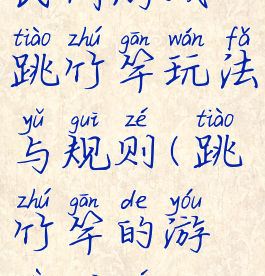 tiào zhú gān wán fǎ
跳竹竿玩法
yǔ guī zé tiào
与规则(跳
zhú gān de yóu
竹竿的游